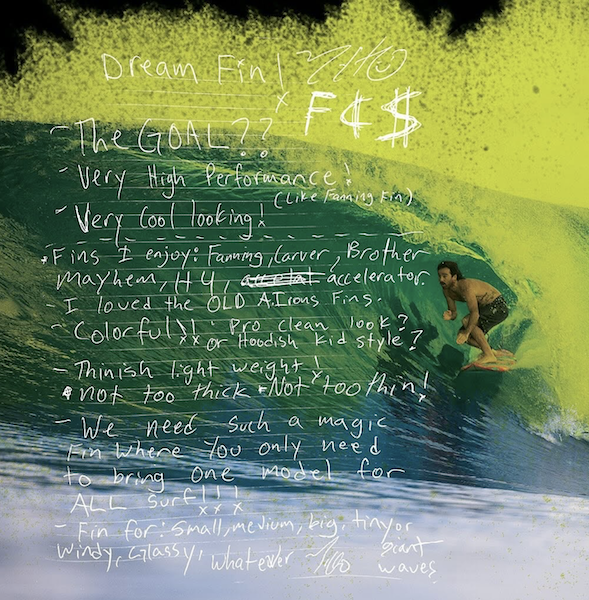 Dream Fin!
x F¢$
- The GOAL??
- Very High Performance!
(Like Fanning Fin)
- Very Cool looking!
• Fins I enjoy: Fanning, Carver, Brother
Mayhem, H4, accelerator.
- I loved the OLD A.Irons Fins.
- Colorful!! Pro clean look?
or Hoodish Kid style?
- Thinish light weight!
• not too thick • Not too thin!
- We need such a magic
Fin Where You only need
to bring one model for
ALL Surf!!!
- Fin for: Small, medium, big, tiny or
Windy, Glassy, whatever giant
waves